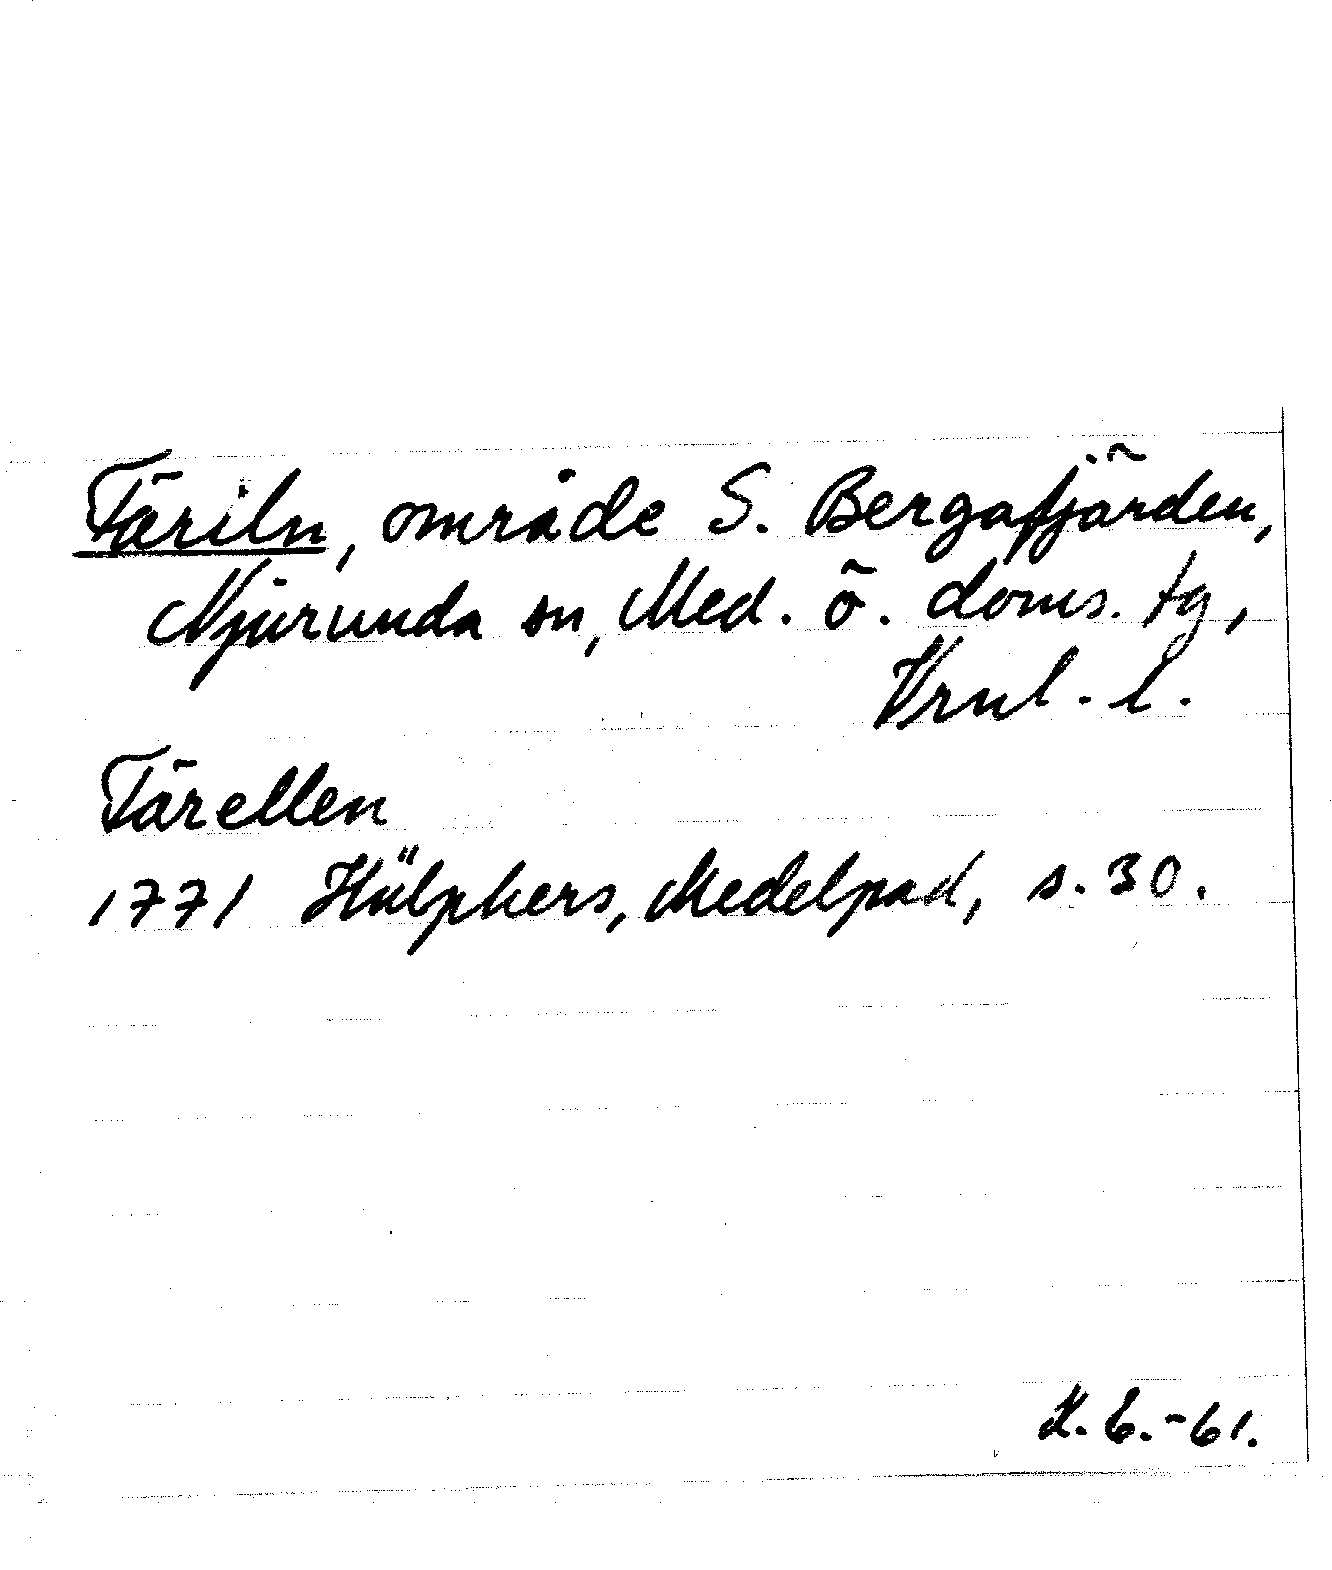 Färiln, område S. Bergafjärden,
Njurunda sn, Med. ö. doms. tg,
Vrnl. l.
Färellen
1771 Hülphers, Medelpad, s. 30.
K. E. -61.